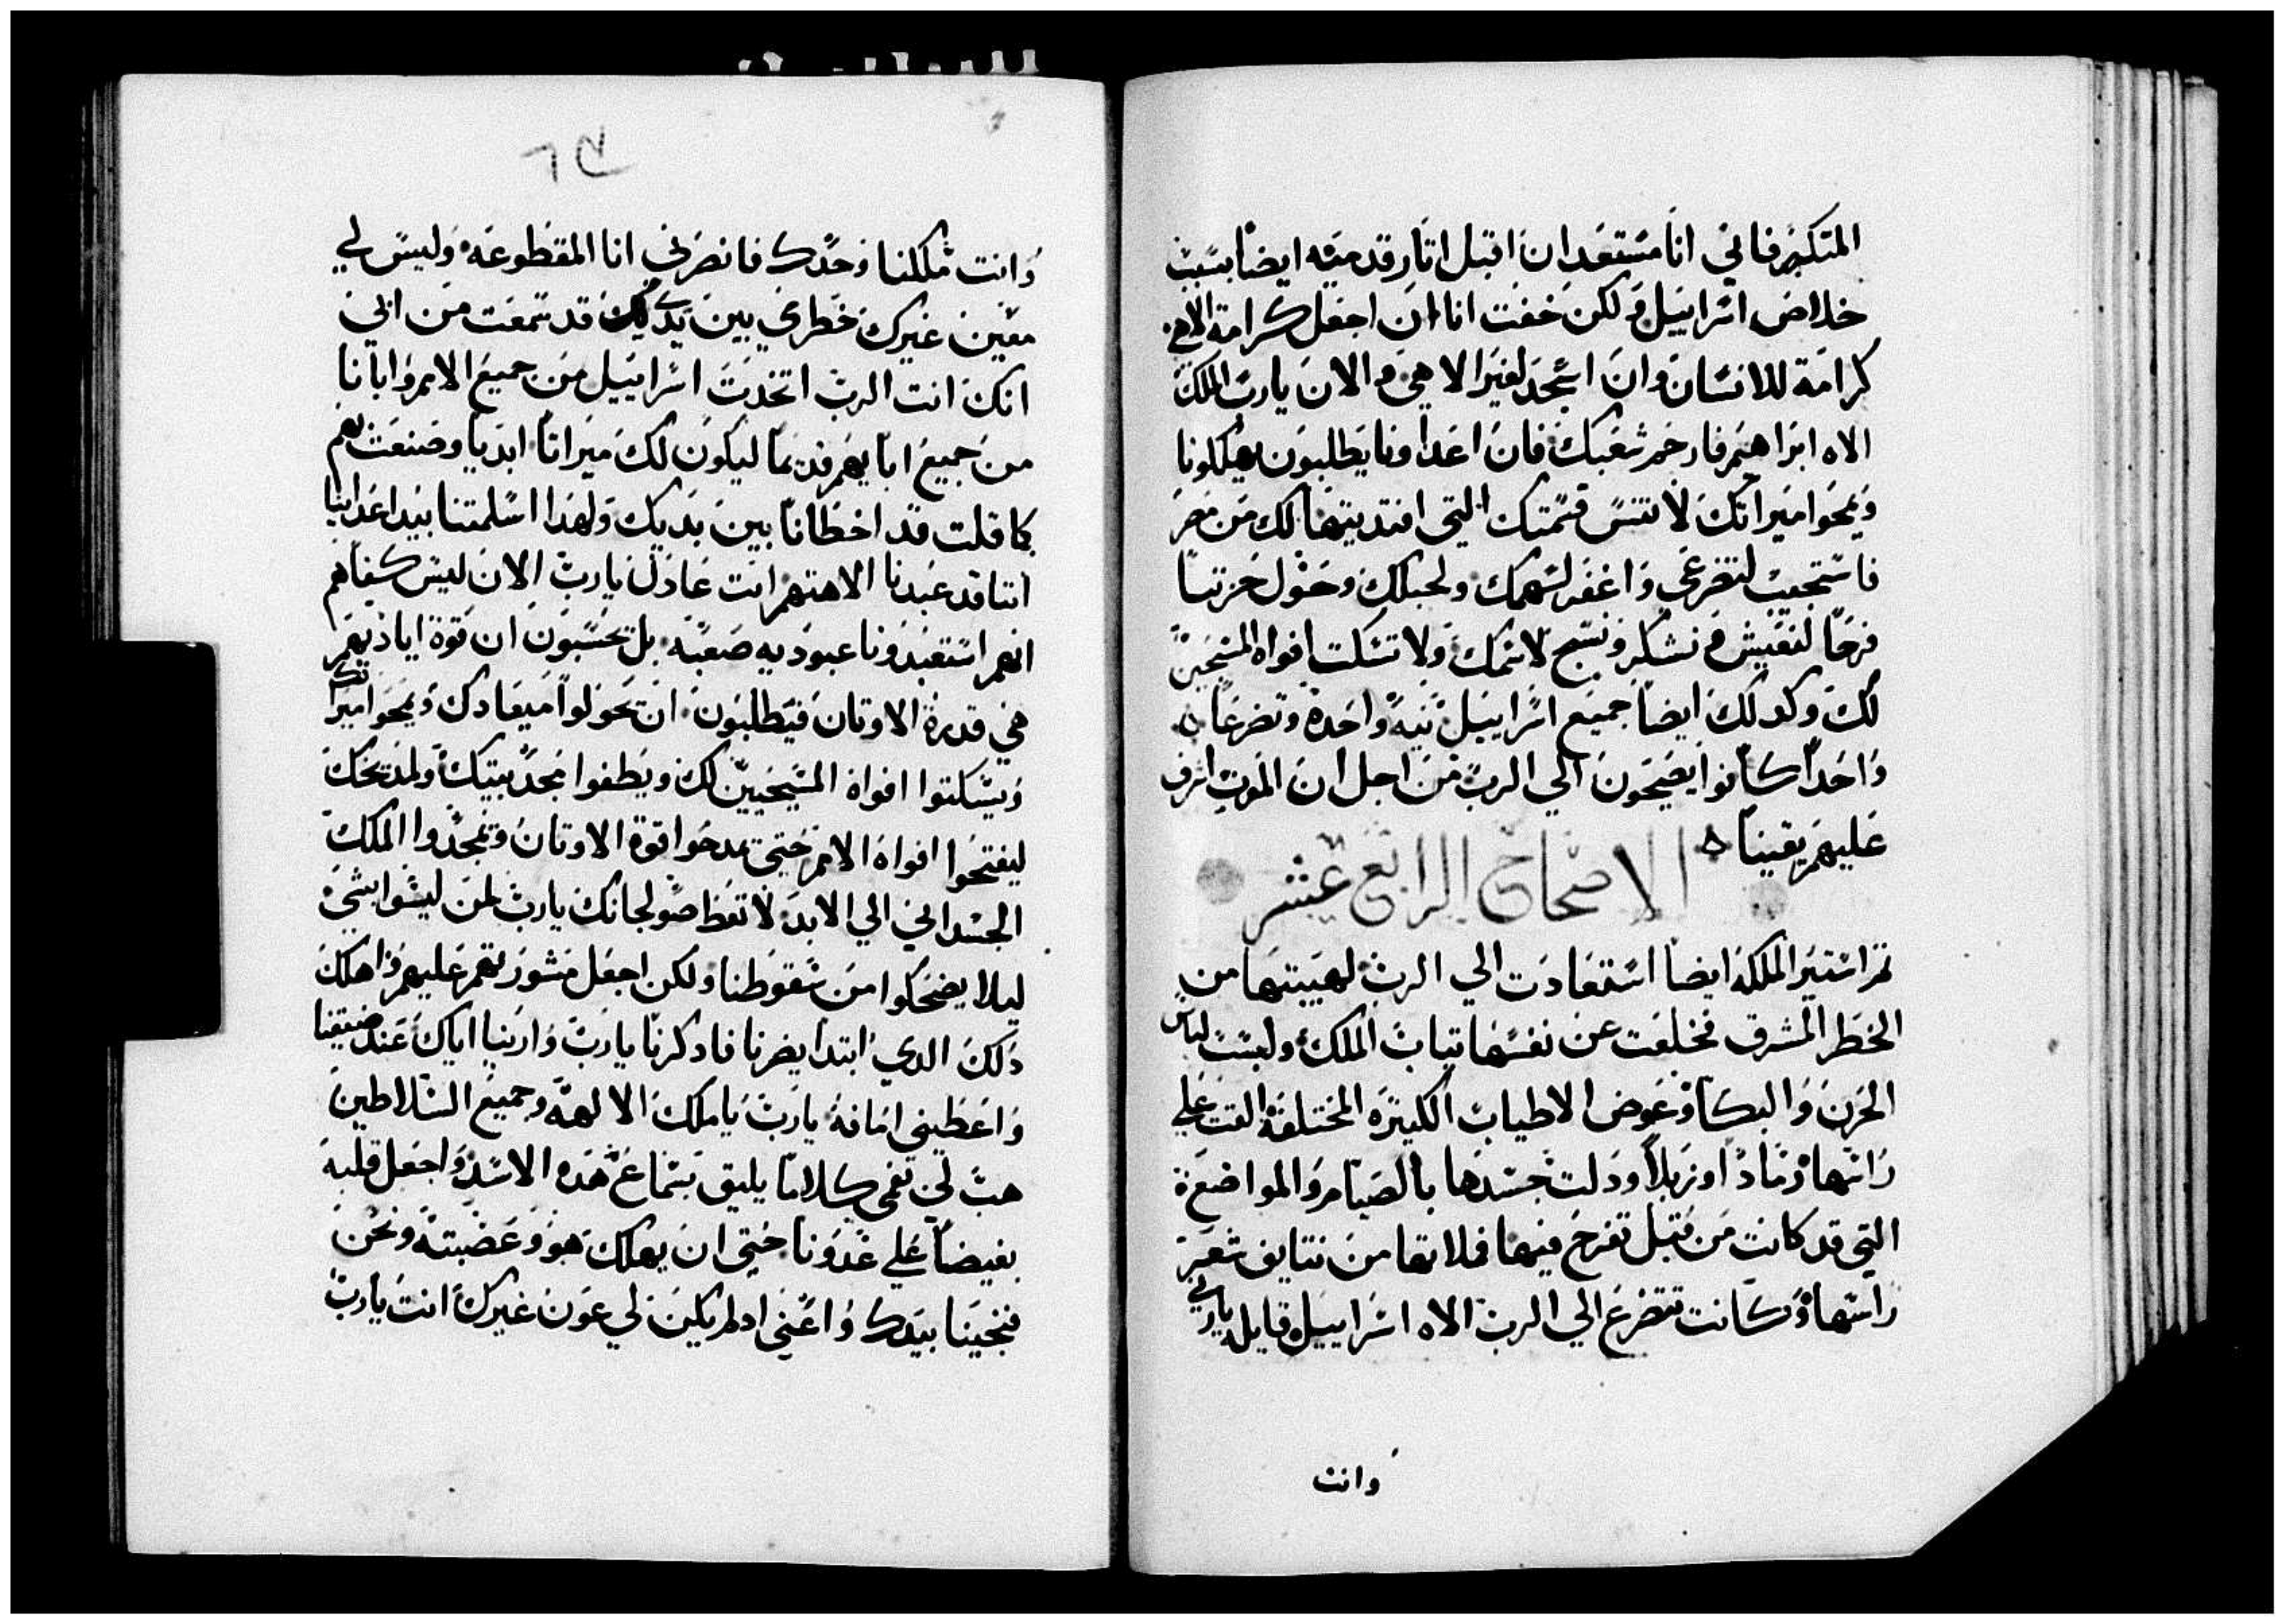 المتكبر فاني انا مستعد ان اقبل اتار قدميه ايضا بسبب
خلاص اسراييل ولكن خفت انا ان اجعل كرامة الاهي
كرامة للانسان وان اسجد لغير الاهي والان يارب الملك
الاه ابراهيم فارحم شعبك فان اعداونا يطلبون يهلكونا
ويمحوا ميراتك لا تنس قسمتك التي افتديتها لك من مصر
فاستجيب لتضرعي واغفر لسهمك ولحبلك وحول حزننا
فرحا لنعيش ونشكر ونسبح لاسمك ولا تسكت افواه المسبحين
لك وكدلك ايضا جميع اسراييل بنية واحدة وتضرعا
واحدا كانوا يضيحون الي الرب من اجل ان الموت اشرف
عليهم يقينا
الاصحاح الرابع عشر
تم استير الملكة ايضا استعادت الي الرب لهيبتها من
الخطر المشرف فخلعت عن نفسها تياب الملك ولبست لباس
الحزن والبكا وعوض الاطياب الكتيره المختلفة القت علي
راسها رمادا وزبلا ودلت جسدها بالصيام والمواضع
التي قد كانت من قبل تفرح فيها فملاتها من نتايف شعر
راسها وكانت تتضرع الي الرب الاه اسراييل قايلة ياربي
وانت
٦٢
وانت ملكنا وحدك فانصرني انا المقطوعة وليس لي
معين غيرك خطري بين يديك قد سمعت من ابي
انك انت الرب اتخدت اسراييل من جميع الامم وابانا
من جميع ابايهم قديما ليكون لك ميراتا ابديا وصنعت بهم
كما قلت قد اخطانا بين يديك ولهدا اسلمتنا بيد اعداينا
اننا قد عبدنا الاهتهم انت عادل يارب الان ليس كفاهم
انهم استعبدونا عبوديه صعبه بل يحسبون ان قوة اياديهم
هي قديرة الاوتان فيطلبون ان يحولوا ميعادك ويمحوا ميراتك
ويسكتوا افواه المسبحين لك ويطفوا مجد بيتك ولمدبحك
ليفتحوا افواه الامم حتي يمدحوا قوة الاوتان ويمجدوا الملك
الجسداني الي الابد لا تعط صولجانك يارب لمن ليسوا بشي
ليلا يضحكوا من سقوطنا ولكن اجعل مشورتهم عليهم واهلك
دلك الدي ابتدا يضرنا فادكرنا يارب وارينا اياك عند ضيقنا
واعطيني امانة يارب ياملك الالهة وجميع السلاطين
هب لي في فمي كلاما يليق بسماع هده الاسد واجعل قلبه
بغيضا علي عدونا حتي ان يهلك هو وعصبته ونحن
فنجينا بيدك واعني اد لم يكن لي عون غيرك انت يارب